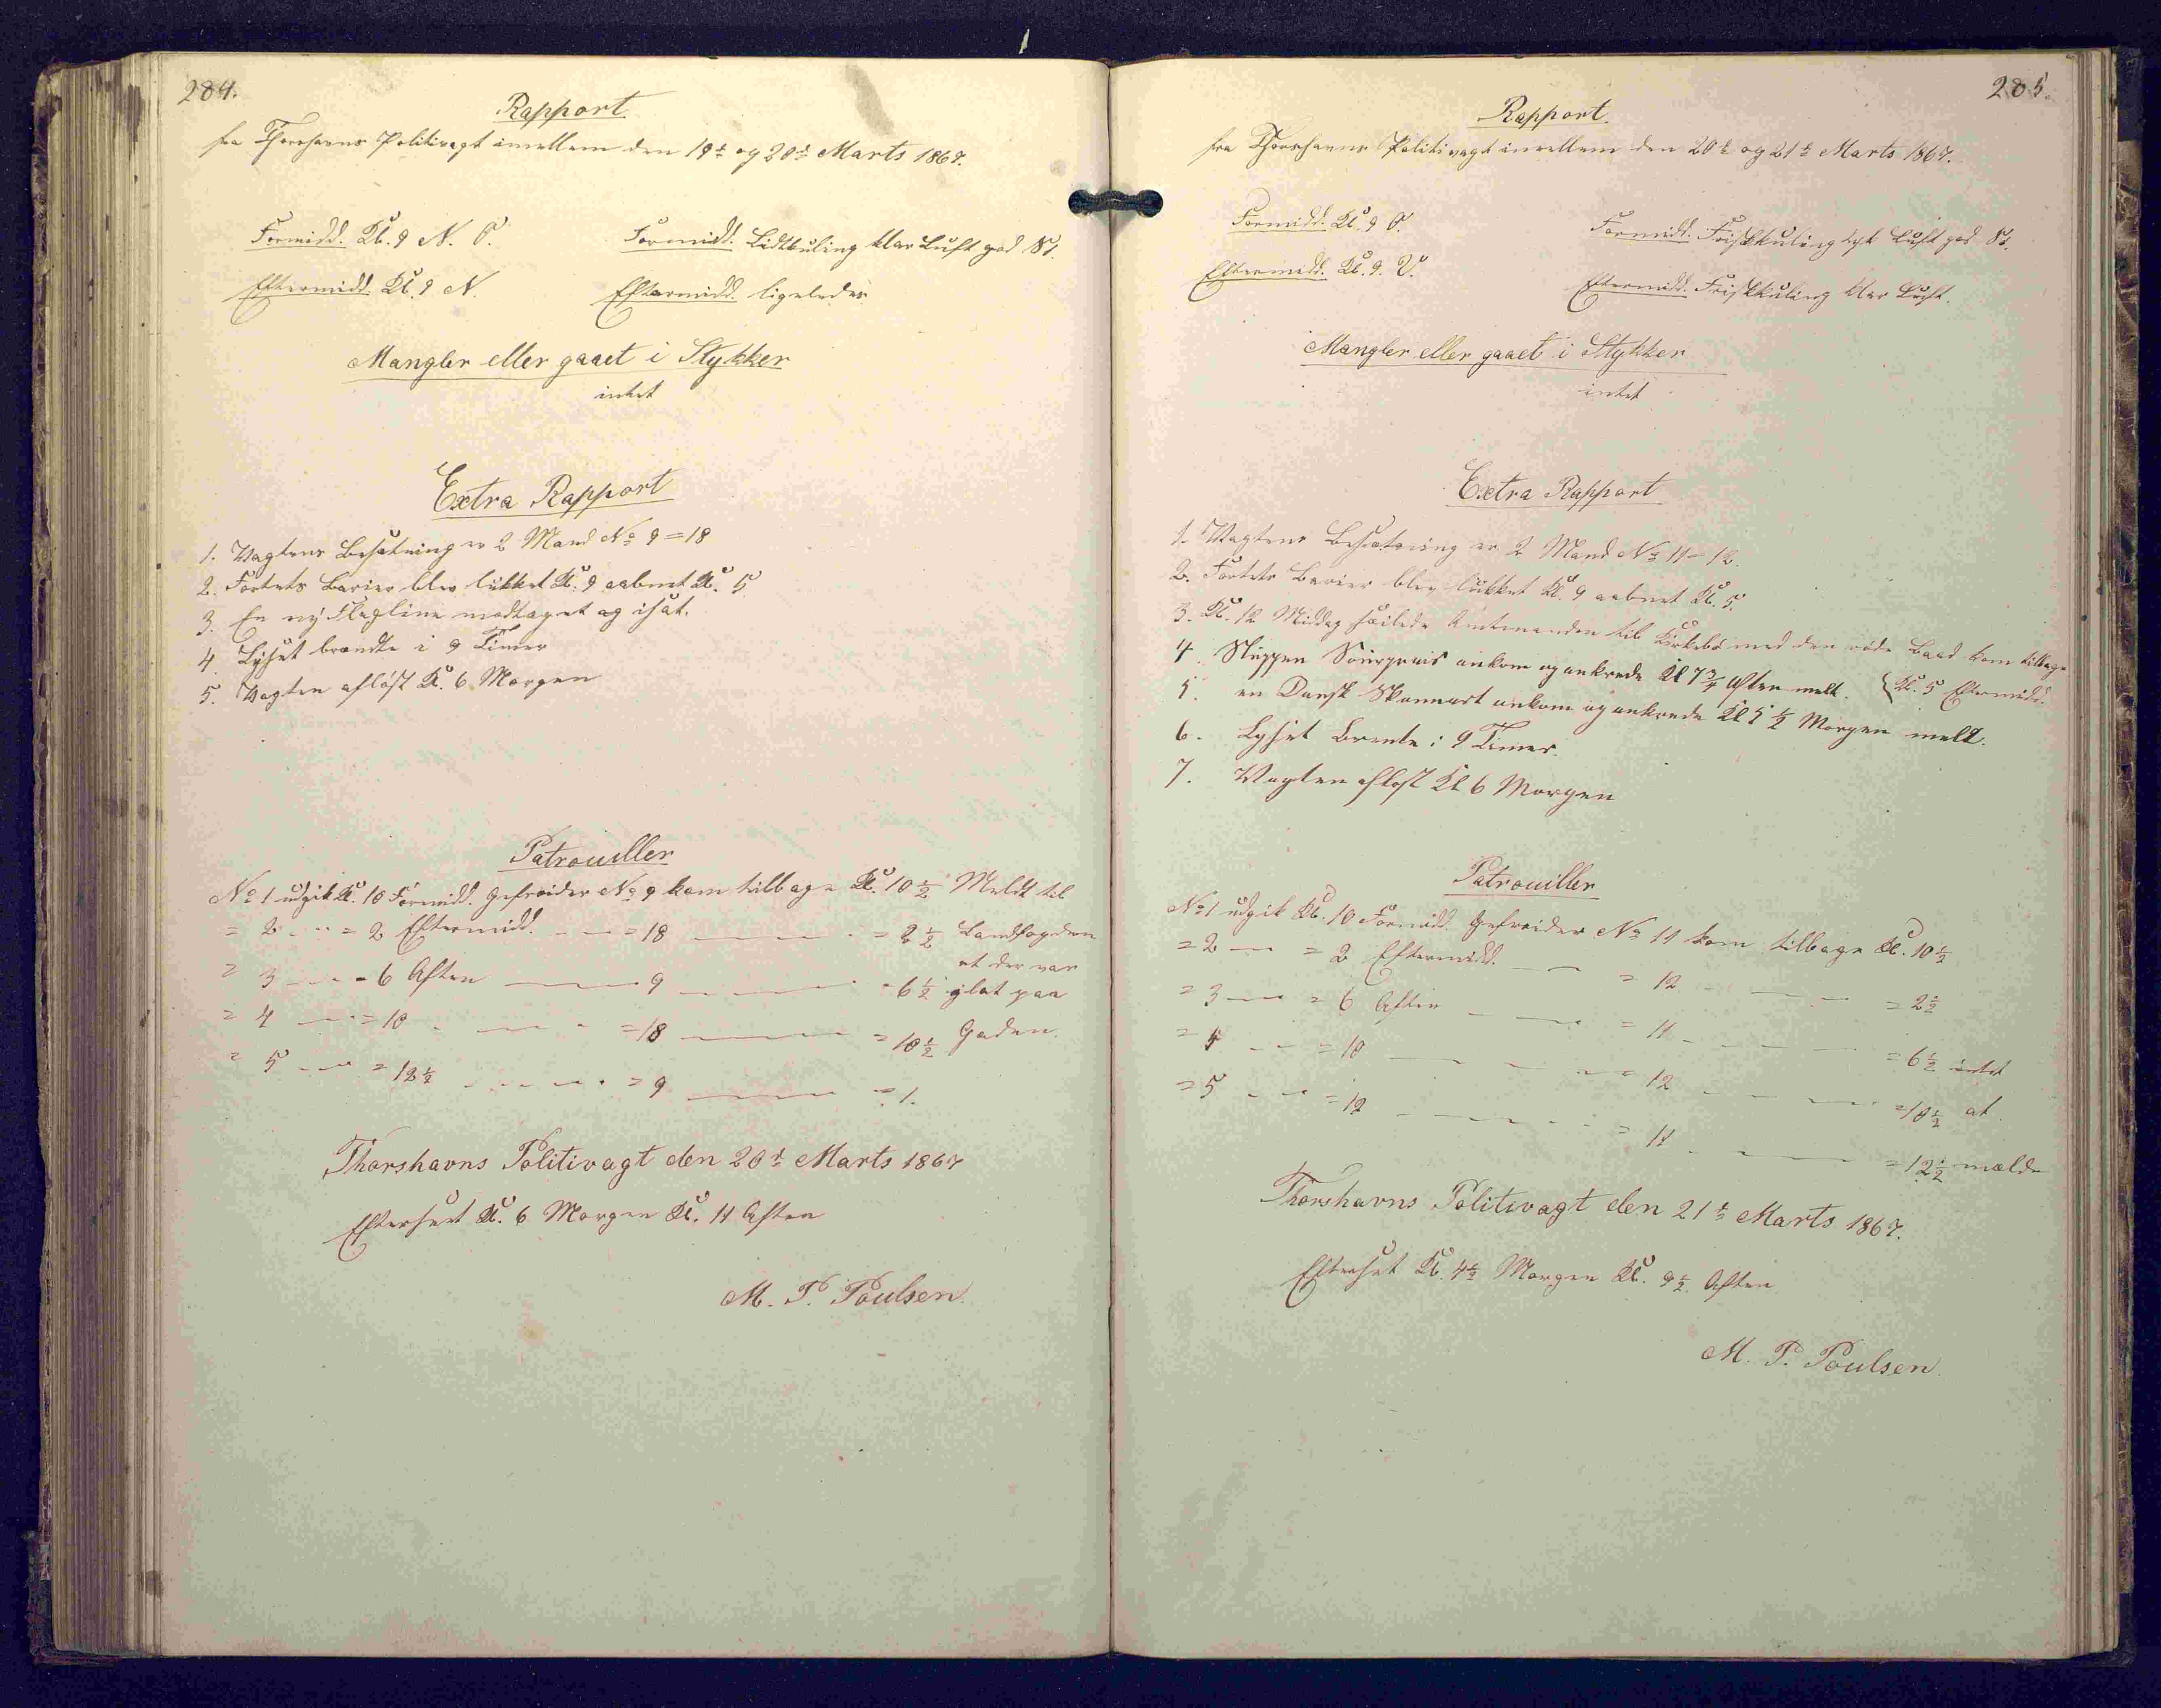 284.
Rapport.
fra Thorshavns Politivagt imellem den 19de og 20de Marts 1867.
Formidd. Kl. 9 N. O. Formidd. Lidtkuling klar Luft god St.
Eftermidd. Kl. 9 N. Eftermidd. ligeledes
Mangler eller gaaet i Stykker
intet
Extra Rapport
1. Vagtens Besætning er 2 Mand No 9 = 18
2. Fortets Barier blev lukket Kl. 9 aabnet Kl. 5
3. En ny Flagline modtaget og isat.
4. Lyset brændte i 9 Timer
5. Vagten afløst Kl. 6 Morgen
Patrouiller
No 1 udgik Kl. 10 Formidd. Gefreider No 9 kom tilbage Kl. 10 ½ Meldt til
= 2 - - = 2 Eftermidd. - - = 18 - = 2 ½ Landfogden
at der var
= 3 - - = 6 Aften - 9 - = 6 ½ glat paa
= 4 - = 10 - - = 18 - = 10 ½ Gaden.
= 5 - = 12 ½ - - = 9 - = 1.
Thorshavns Politivagt den 20de Marts 1867
Efterseet Kl. 6 Morgen Kl. 11 Aften
M. P. Poulsen.
285.
Rapport.
fra Thorshavns Politivagt imellem den 20de og 21de Marts 1867.
Formidd. Kl. 9 O. Formidd. Friskkuling tyk Luft god St.
Eftermidd. Kl. 9. V. Eftermidd. Friskkuling klar Luft.
Mangler eller gaaet i Stykker
intet
Extra Rapport
1. Vagtens Besætning er 2 Mand No 11 = 12.
2. Fortets Barier blev lukket Kl. 9 aabnet Kl. 5.
3. Kl. 12 Middag seilede Amtmanden til Kirkebø med den røde Baad kom tilbage
{Kl. 5 Eftermidd.
4. Sluppen ankom og ankrede Kl 7 ¾ Aften melt.
5. en Dansk Skonnert ankom og ankrede Kl 5 ½ Morgen melt.
6. Lyset Brente i 9 Timer.
7. Vagten afløst Kl 6 Morgen
Patrouiller
No 1 udgik Kl. 10 Formidd. Gefreider No 11 kom tilbage Kl. 10 ½
= 2 - = 2 Eftermidd. - - = 12 - - = 2 ½
= 3 - = 6 Aften - - = 11 - - = 6 ½ intet
= 4 - - = 10 - - = 12 - - = 10 ½ at
= 5 - - = 12 - - = 11 - - = 12 ½ melde
Thorshavns Politivagt den 21de Marts 1867.
Efterset Kl. 4 ½ Morgen Kl. 9 ½ Aften
M. P. Poulsen.